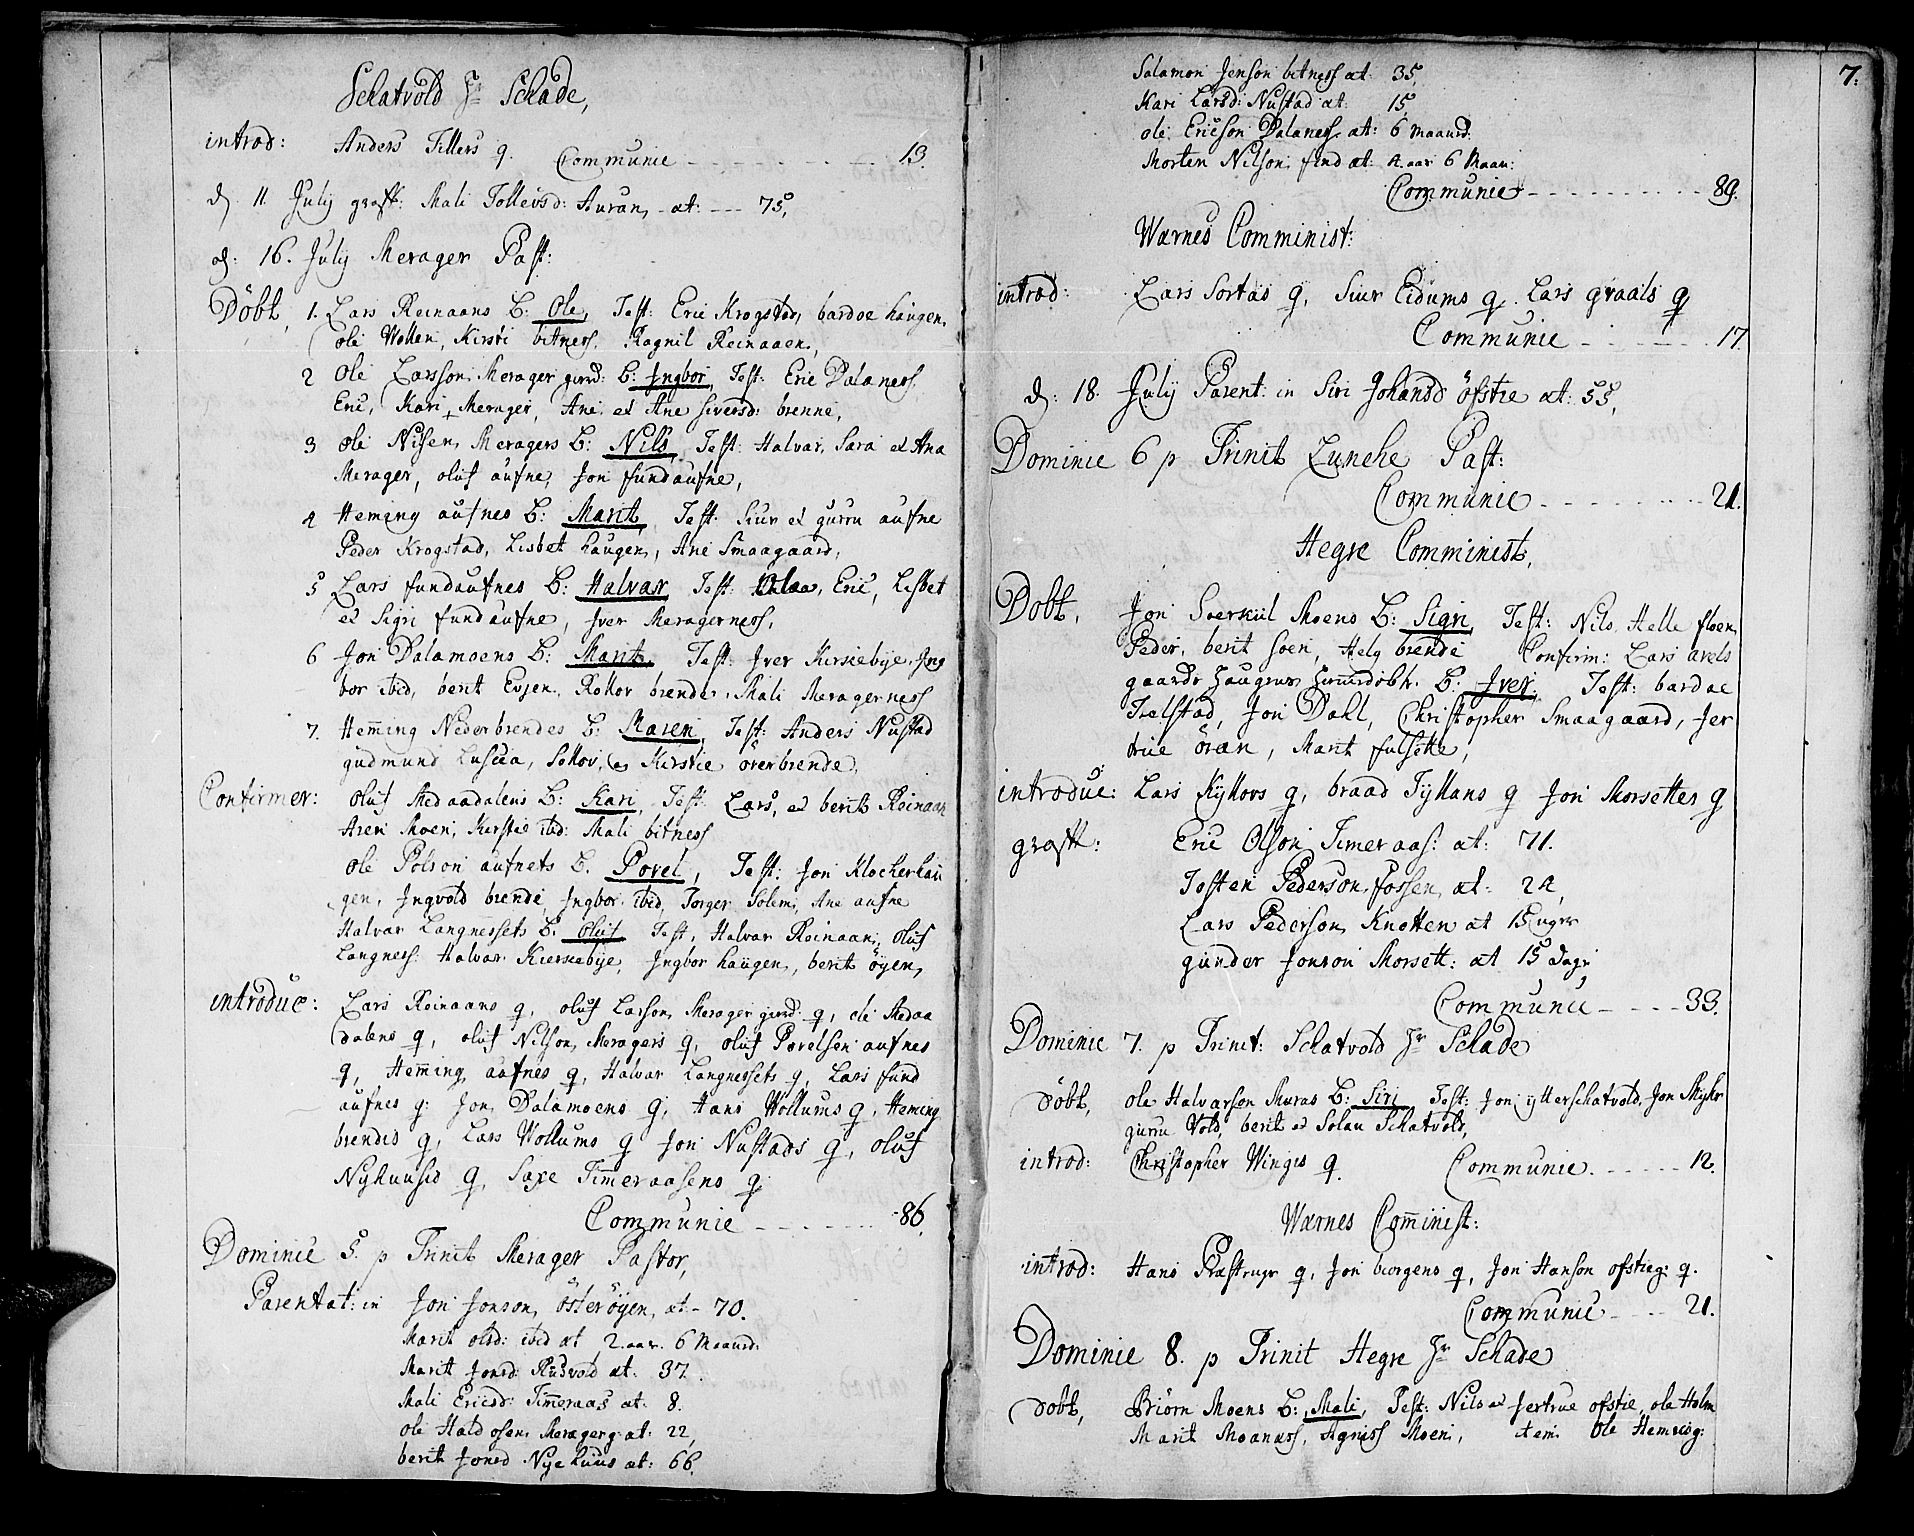 Schatvold Hr Schade,
introd: Anders Tillers q. Communic 13.
d. 11. Julij graft: Mali Tollevsd: Auran, at: 75,
d: 16. Julij Merager Past:
Döbt, 1. Lars Reinaans B: Ole, Test: Eric Krogstad, bardoe haugen,
ole Wollen, Kirsti bitness. Ragnil Reinaaen,
2 Ole Larsson Merager gurd: B: Ingbor, Test: Eric Dalaness
Eric, Kari, Merager, Ane et Ane siversd: brenne,
3 ole Nilsen Meragers B: Nils, Test: Halvar, Sara et Ana
Merager, oluf aufne, Jon fundaufne,
4 Heming aufnes B: Marit, Test: Siur et gurru aufne
Peder Krogstad, Lisbet haugen, Ane Smaagaard,
5 Lars fundaufnes B: Halvar Test: Olaa, Eric, Lisbet
et Sigri fundaufne, Iver Meragerness,
6 Jon Dalamoens B: Marit, Test: Iver Kirkebye, Ing
bor ibid, berit Evjen, Rollov brende, Mali Meragerness
7. Heming Nederbrendes B: Maren, Test: Anders Nustad
gudmund Luscea, Sollov, et Kirstie överbrende,
Confirmer: oluf Medaadalens B: Kari, Test: Lars, et berit Reinaan
Aren Moen, Kirstie ibid: Mali bitness
ole Polson aufnets B. Povel, Test: Jon Klockerhau
gen, Ingvold brende, Ingbor ibid, Torger Solem, Ane aufne
Halvar Langnessets B: Oluf Test, Halvar Reinaan, oluf
Langness: Halvar Kierkebye, Ingbor haugen, berit öyen,
introduc: Lars Reinaans q, oluf Larson, Merager gurd: q, ole Medaa
dalens q, oluf Nilson, Meragers q, oluf Povelsen aufnes
q, Heming aufnes q, Halvar Langnessets q, Lars fund
aufnes q: Jon, Dalamoens q, Hans Wollums q, Heming
brendes q, Lars Wollums q Jon Nustads q, oluf
Nyhuuses q, Saxe Timeraasens q:
Communic 86,
Dominic 5. p Trinit Merager Pastor,
Parentat: in Jon Jonson, österöyen, at 70.
Marit olsd: ibid at 2. aar. 6 Maaned.
Marit Jonsd: Rusvold at. 37.
Mali Ericsd: Timeraas at: 8.
ole Haldosen, Merager g: at: 22,
berit Jonsd Nyehuus at: 66,
7.
Salamon Jenson bitness at: 35,
Kari Larsd: Nustad at: 15,
ole Ericson Dalaness at: 6 Maaned.
Morten Nilson, fund at: 4. aar 6 Maan:
Communic 89.
Wærnes Comminist:
introd: Lars Sortas q, Siur Eidums q. Lars graals q
Communic 17.
d: 18. Julij Parent: in Siri Johansd öfstie at: 55,
Dominic 6 p Trinit Lunche Past:
Communic 21.
Hegre Comminist,
Dobt, Jon Soerkiil Moens B: Sigri, Test: Nils, Helle floen,
Peder, berit soen, Helg brende Confirm: Lars arels
gaards Haugens B: Iver, Test: bardoe
Trelstad, Jon Dahl, Christopher Smaagaard, Jer
true öran, Marit fulsette,
introduc: Lars Kyllovs q, braad Tyllans q Jon Morsettes q
graft: Eric Olson Timeraas: at: 71.
Josten Pederson, fossen, at: 24,
Lars Pederson, Knotten at 15 uger
gunder Jonson Morsett: at 15 dage
Communic 33.
Dominic 7. p Trinit: Schatvold Hr Schade
döbt, ole Halvarson Muras B: Siri Test: Jon ytterschatvold, Jon Mykr
gurru Vold, berit et Solau Schatvold,
introd: Christopher Winges q. Communic 12.
Wærnes Cominist:
introd: Hans Præstruge q, Jon biorgens q, Jon Hanson ofstieg: q.
Communic 21.
Dominic 8. p Trinit Hegre Hr Schade
dobt, Briörn Moens B: Mali, Test: Nils et Jertrue ofstie, ole Holm
Marit Moanæss, Agniss Moen, item. Ole Hemreg: